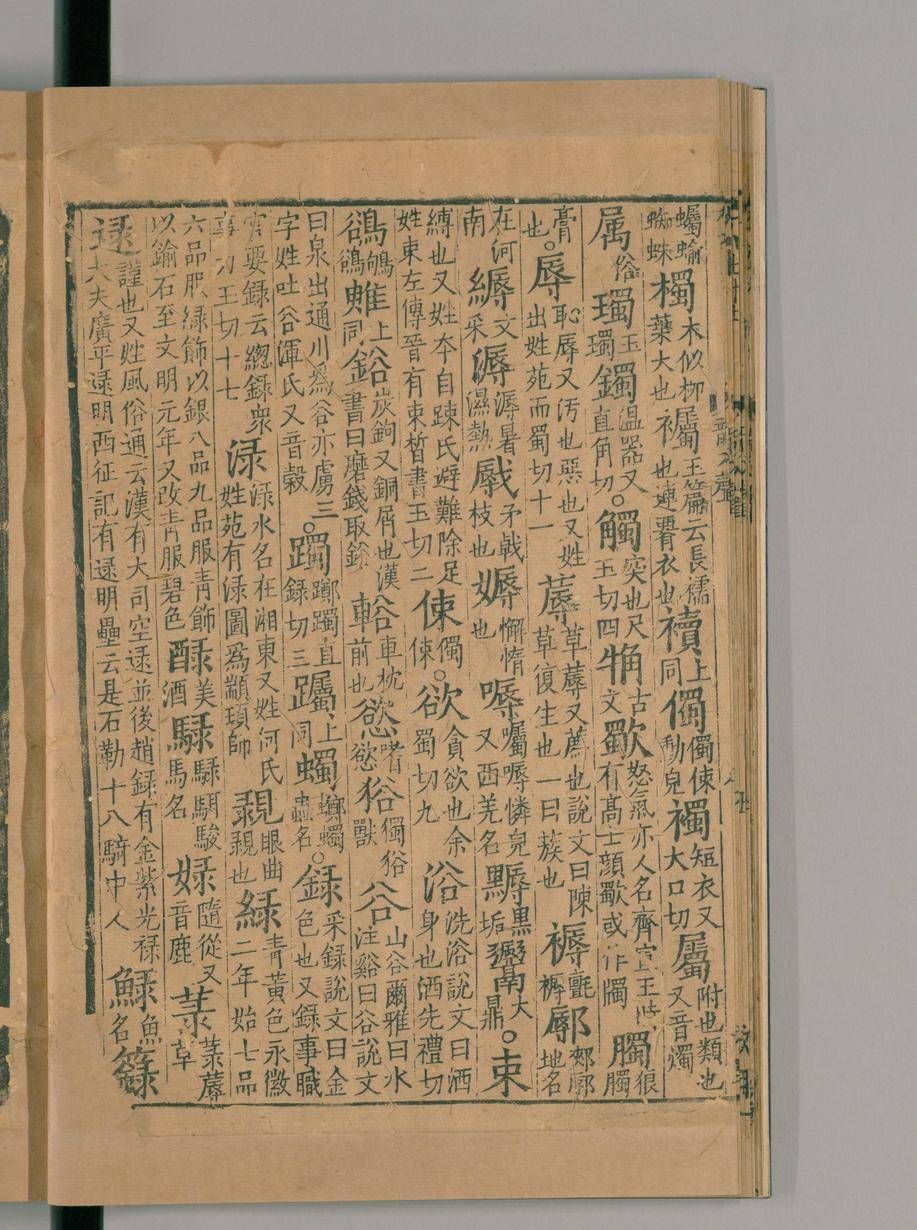 蠾蝓蜘蛛欘木似柳葉大也𧞹玉篇云長襦也連署衣也襩上同㒔㒔倲動皃襡短衣又大口切屬附也類也又音燭
属俗鐲温器又直角切○觸突也尺玉切四𧢻古文歜怒氣亦人名齊宣王時有高士顔歜或作斶臅臅狼
膏也○辱恥辱又汚也惡也又姓出姓苑而蜀切十一蓐草蓐又薦也說文曰陳草復生也一曰蔟也褥氊褥鄏郟鄏地名
在河南縟文采溽溽暑濕熱㦺矛戟枝也媷懈惰也嗕囑嗕憐皃又西羌名黑垢大鼎○束
縛也又姓夲自踈氏避難除足姓束左傳晉有束晳書玉切二倲㒔倲○欲貪欲也余蜀切九浴洗浴說文曰洒身也洒先禮切
鵒鴝鵒上同鋊炭鉤又銅屑也漢書曰磨錢取鋊輍車枕前也慾嗜慾𤞞獨𤞞獸谷山谷爾雅曰水注谿曰谷說文
曰泉出通川爲谷亦虜三字姓吐谷渾氏又音穀○躅躑躅直録切三躅上同蠋蠋蟲名○録采録說文曰金色也又録事職
官要録云總録衆事力玉切十七渌渌水名在湘東又姓何氏姓苑有渌圖爲顓頊師眼曲也緑青黄色永徽二年始七品
六品服緑飾以銀八品九品服青飾以鍮石至文明元年又改青服碧色醁美酒騄騄駬駿馬名娽隨從又音鹿菉菉蓐草
逯謹也又姓風俗通云漢有大司空逯並後趙録有金紫光禄大夫廣平逯明西征記有逯明壘云是石勒十八騎中人魚名籙